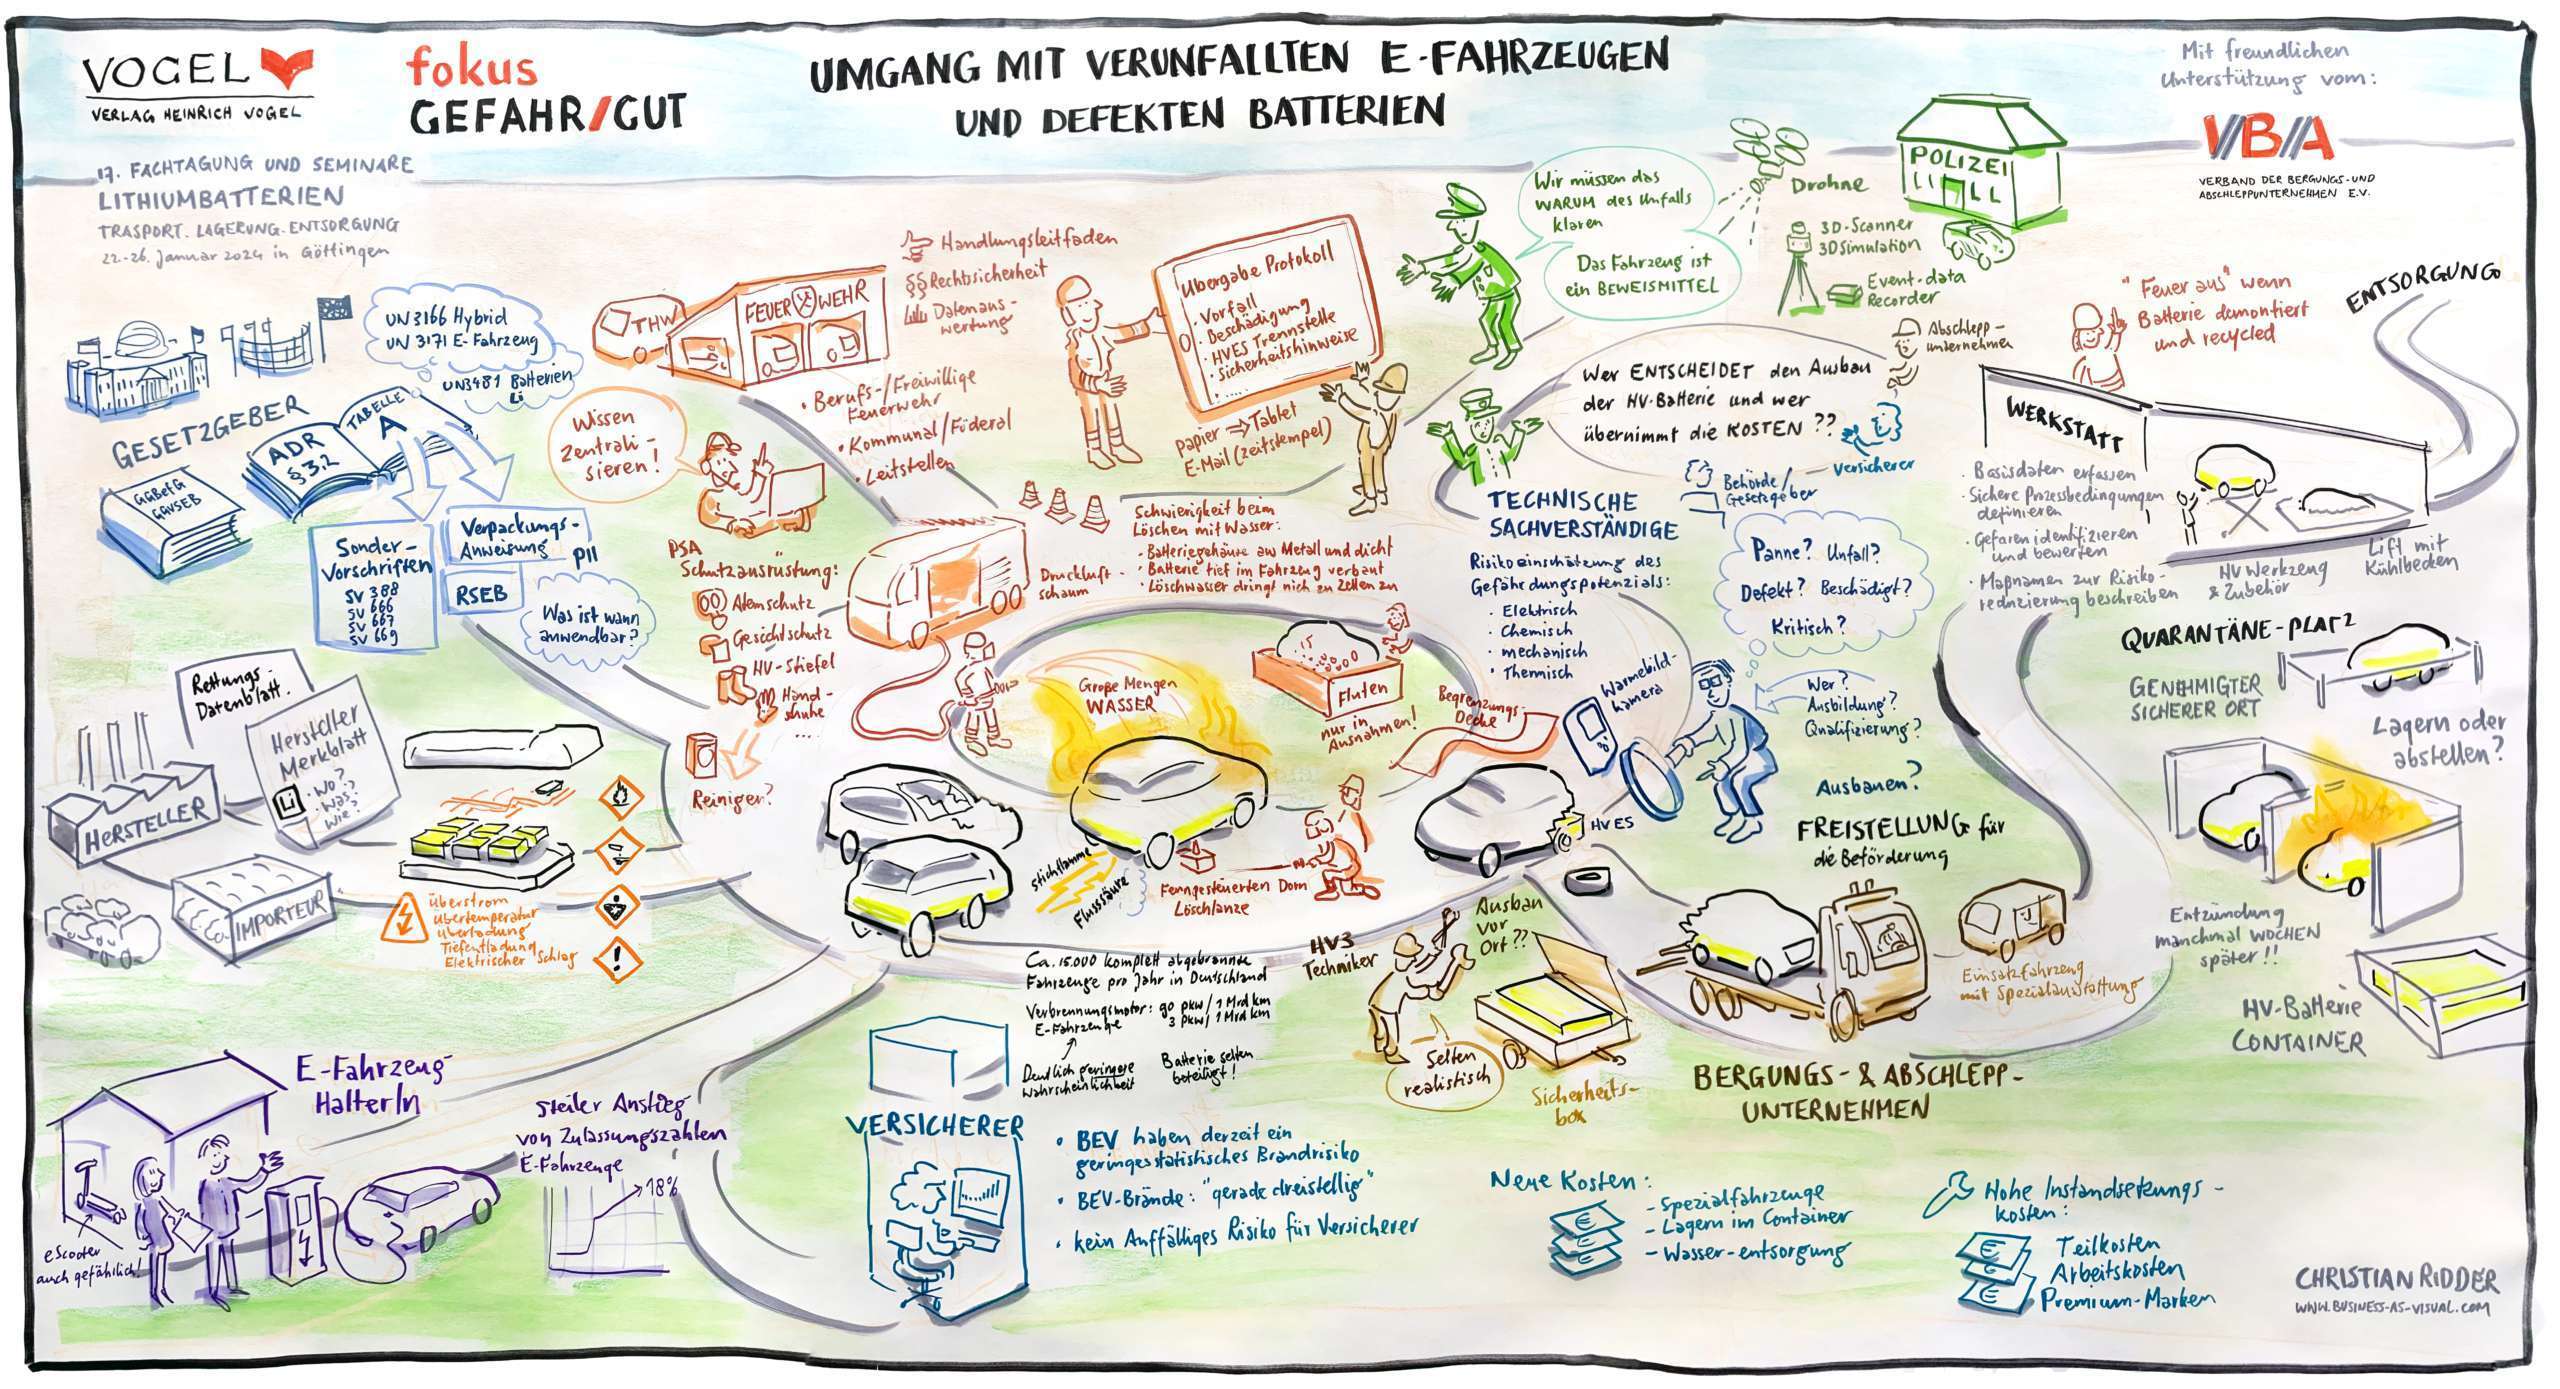 VOGEL
VERLAG HEINRICH VOGEL
fokus
GEFAHR/GUT
UMGANG MIT VERUNFALLTEN E-FAHRZEUGEN
UND DEFEKTEN BATTERIEN
Mit freundlichen
Unterstützung vom:
VBA
VERBAND DER BERGUNGS-UND
ABSCHLEPPUNTERNEHMEN E.V.
17. FACHTAGUNG UND SEMINARE
LITHIUMBATTERIEN
TRASPORT. LAGERUNG. ENTSORGUNG
22.-26. Januar 2024 in Göttingen
UN 3166 Hybrid
UN 3171 E-Fahrzeug
UN3481 Batterien
Li
GESETZGEBER
ADR
§ 3.2
TABELLE
A
GGBefG
GGVSEB
Sonder-
Vorschriften
SV 388
SV 666
SV 667
SV 669
Verpackungs-
Anweisung P11
RSEB
Was ist wann
anwendbar?
THW
FEUERWEHR
Handlungsleitfaden
§§ Rechtssicherheit
Datenaus-
wertung
• Berufs-/Freiwillige
Feuerwehr
• Kommunal/Föderal
• Leitstellen
Wissen
Zentrali-
sieren!
PSA
Schutzausrüstung:
Atemschutz
Gesichtschutz
HV-Stiefel
Hand-
schuhe
...
Reinigen?
Übergabe Protokoll
• Vorfall
• Beschädigung
• HVES Trennstelle
• Sicherheitshinweise
• ....
Papier ⇒ Tablet
E-Mail (Zeitstempel)
Schwierigkeit beim
Löschen mit Wasser:
• Batteriegehäuse aus Metall und dicht
• Batterie tief im Fahrzeug verbaut
• Löschwasser dringt nich zu Zellen zu
Druckluft-
schaum
Wir müssen das
WARUM des Unfalls
klären
Das Fahrzeug ist
ein BEWEISMITTEL
Drohne
POLIZEI
3D-Scanner
3D Simulation
Event-data
Recorder
Wer ENTSCHEIDET den Ausbau
der HV-Batterie und wer
übernimmt die KOSTEN ??
Abschlepp-
unternehmen
Versicherer
Behörde/
Gesetzgeber
"Feuer aus" wenn
Batterie demontiert
und recycled
ENTSORGUNG
WERKSTATT
• Basisdaten erfassen
• Sichere Prozessbedingungen
definieren
• Gefaren identifizieren
und bewerten
• Maßnamen zur Risiko-
reduzierung beschreiben
HV Werkzeug
& Zubehör
Lift mit
Kühlbecken
TECHNISCHE
SACHVERSTÄNDIGE
Risikoeinschätzung des
Gefährdungspotenzials:
• Elektrisch
• Chemisch
• mechanisch
• Thermisch
Panne? Unfall?
Defekt? Beschädigt?
Kritisch?
Wärmebild-
kamera
Wer?
Ausbildung?
Qualifizierung?
Ausbauen?
FREISTELLUNG für
die Beförderung
QUARANTÄNE-PLATZ
GENEHMIGTER
SICHERER ORT
Lagern oder
abstellen?
Entzündung
manchmal WOCHEN
später!!
HV-Batterie
CONTAINER
Rettungs
Datenblatt.
Hersteller
Merkblatt
Li
• Wo?
• Was?
• Wie?
HERSTELLER
IMPORTEUR
Überstrom
Übertemperatur
Überladung
Tiefentladung
Elektrischer Schlag
Große Mengen
WASSER
Fluten
nur in
Ausnahmen!
Begrenzungs-
Decke
Stichflamme
Flusssäure
Ferngesteuerten Dorn
Löschlanze
HVES
Ca. 15.000 komplett abgebrannde
Fahrzeuge pro Jahr in Deutschland
Verbrennungsmotor: 90 pkw/1 Mrd km
E-Fahrzeuge 3 pkw/1 Mrd km
Deutlich geringere
Wahrscheinlichkeit
Batterie selten
beteiligt!
HV3
Techniker
Ausbau
vor
Ort??
Selten
realistisch
Sicherheits-
box
Einsatzfahrzeug
mit Spezialausstattung
BERGUNGS- & ABSCHLEPP-
UNTERNEHMEN
E-Fahrzeug
HalterIn
eScooter
auch gefährlich!
Steiler Anstieg
von Zulassungszahlen
E-Fahrzeuge
18%
VERSICHERER
• BEV haben derzeit ein
geringes statistisches Brandrisiko
• BEV-Brände: "gerade dreistellig"
• kein Auffälliges Risiko für Versicherer
Neue Kosten:
- Spezialfahrzeuge
- Lagern im Container
- Wasser-entsorgung
Hohe Instandsetzungs-
kosten:
Teilkosten
Arbeitskosten
Premium-Marken
CHRISTIAN RIDDER
WWW.BUSINESS-AS-VISUAL.COM